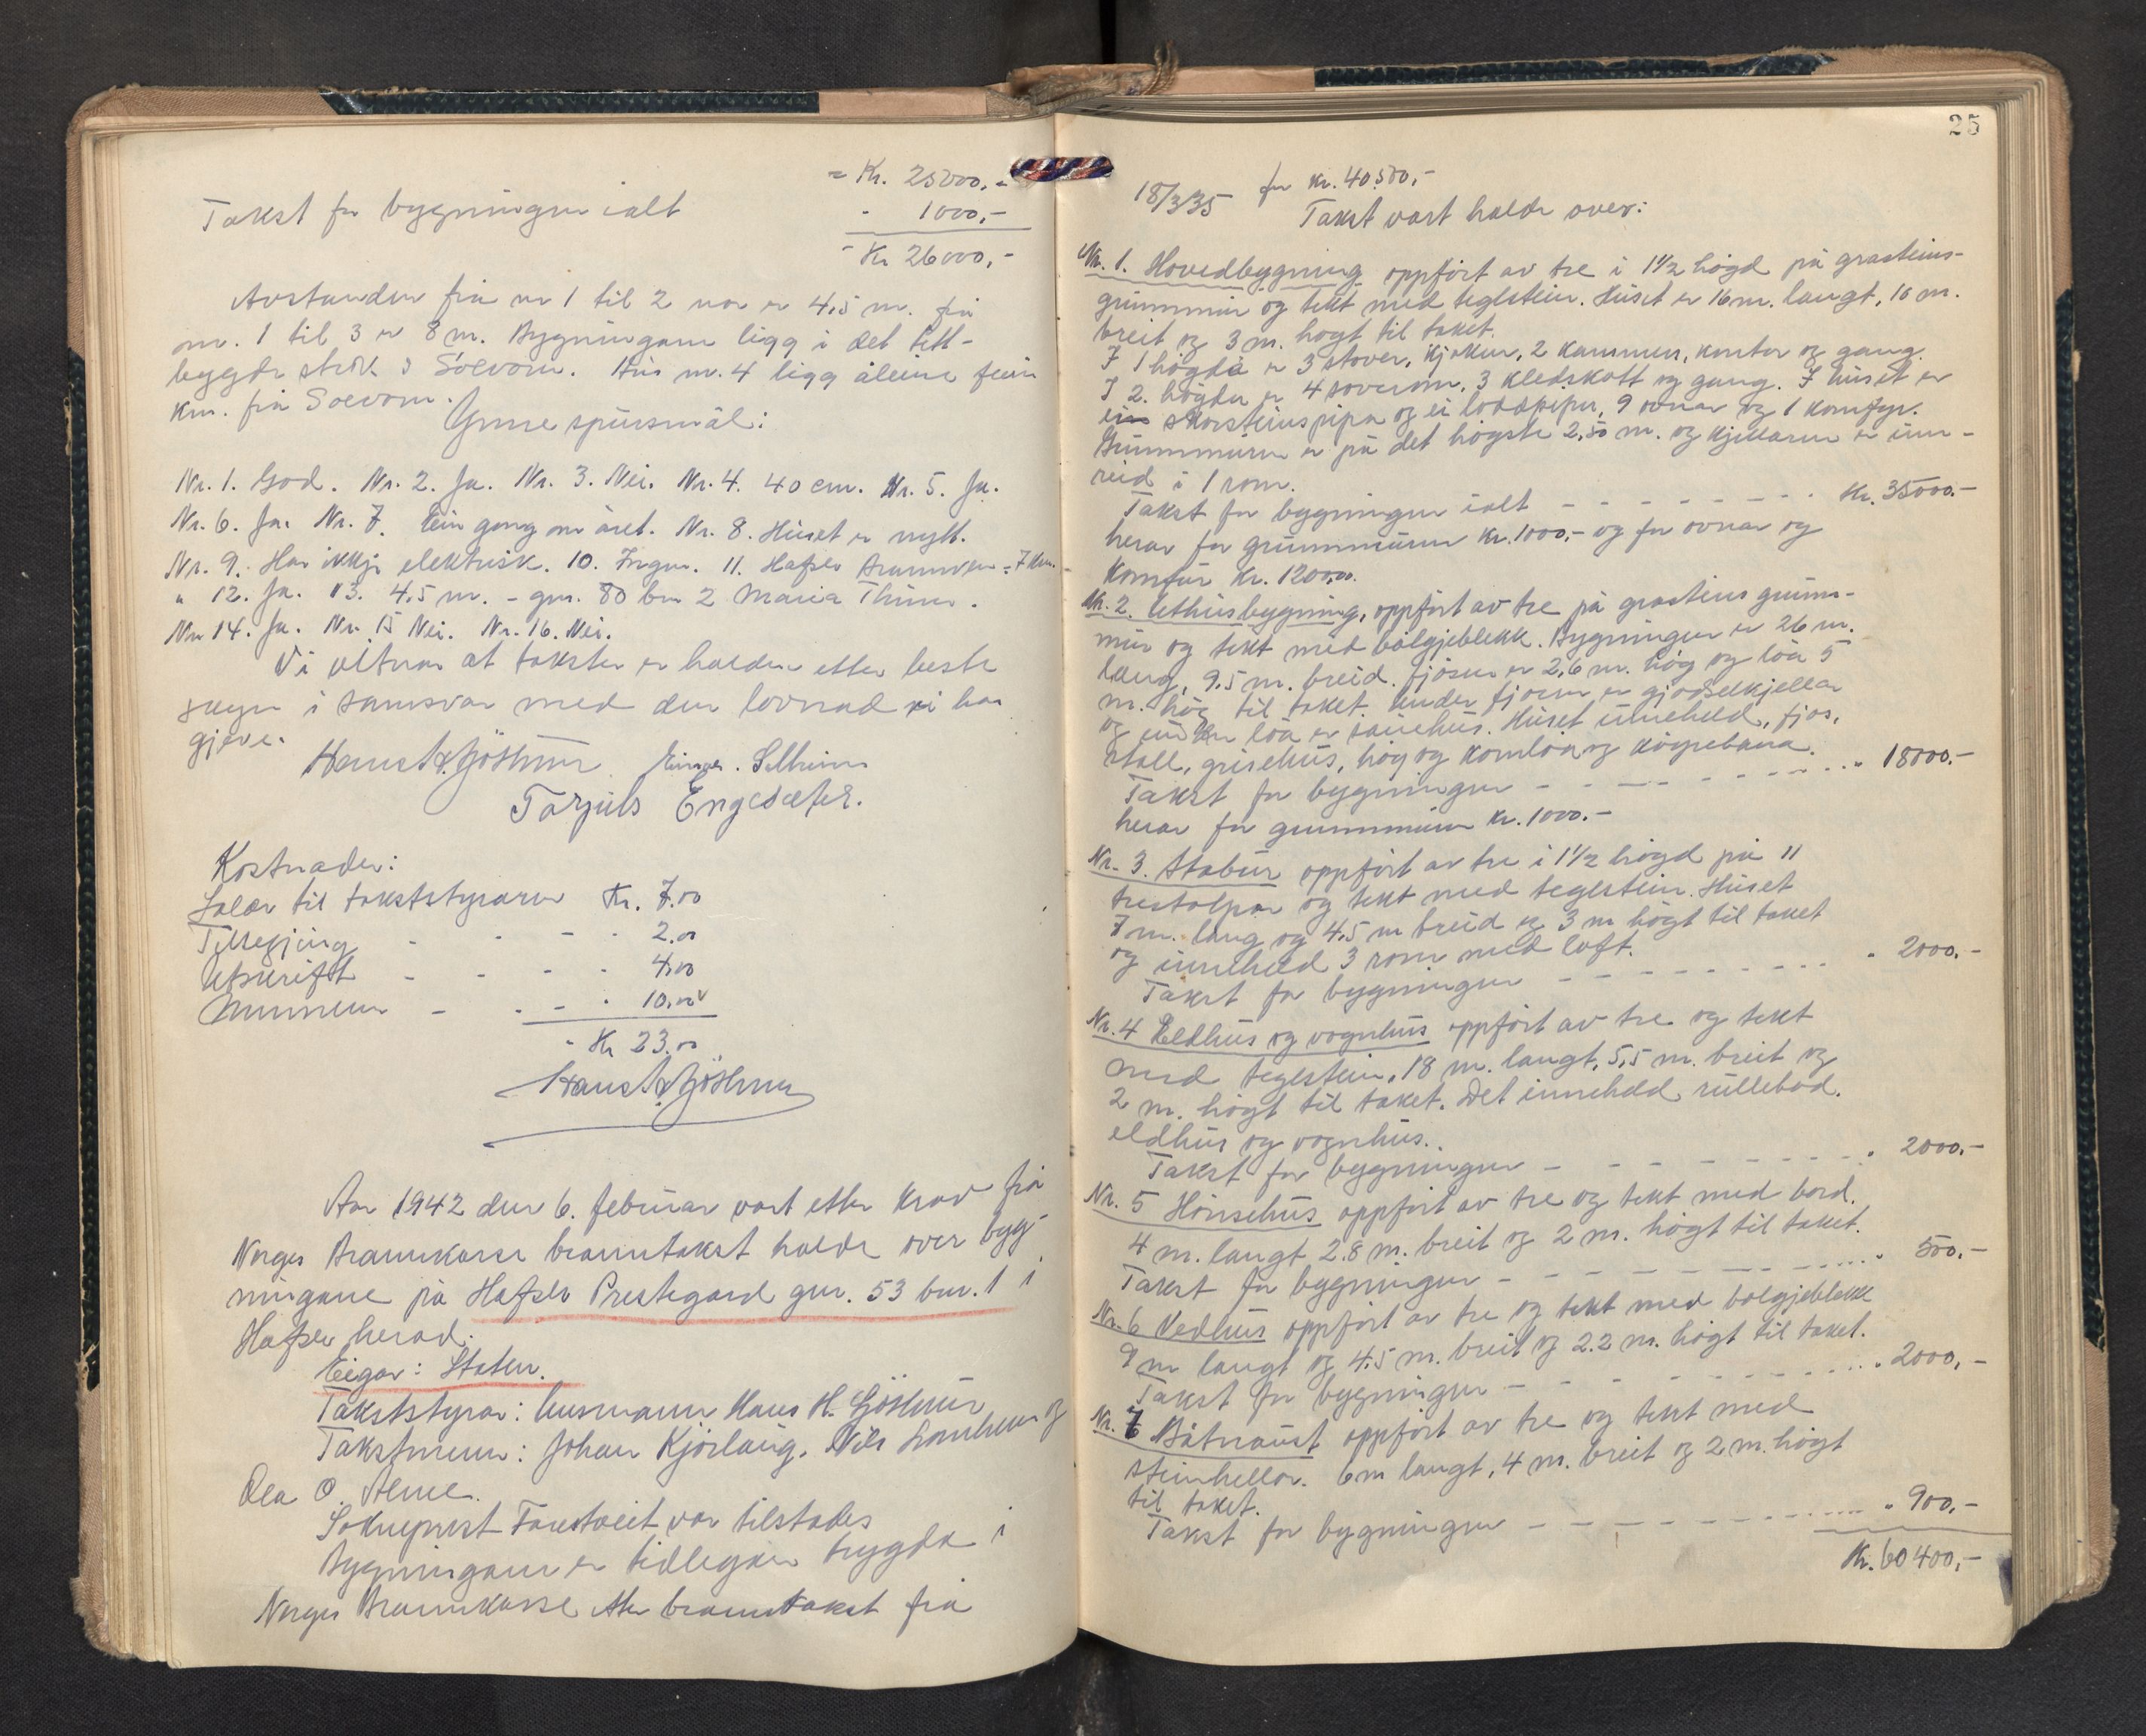 = Kr. 25000.-
Takst for bygningen ialt - 1000,-
- Kr 26000,-
Avstanden frå nr 1 til 2 var er 4,5 m. frå
nr. 1 til 3 er 8 m. Bygningane ligg i det tett-
bygde strök i Solvorn. Hus nr. 4 ligg åleine fem
km. frå Solvorn.
Ymse spursmål:
Nr. 1. God. Nr. 2. Ja. Nr. 3. Nei. Nr. 4. 40 cm. Nr. 5. Ja.
Nr. 6. Ja. Nr. 7. Ein gong om året. Nr. 8. Huset er nytt.
Nr. 9. Har ikkje elektrisk. 10. Ingen. 11. Hafslo Brannven = 7 km.
" 12. Ja. 13. 4,5 m. - gnr. 80 bnr 2 Maria Thune.
Nr 14. Ja. Nr. 15 Nei. Nr. 16. Nei.
Vi vitnar at taksten er halden etter beste
skyn i samsvar med den lovnad vi har
gjeve.
Hans H. Gjöstein Einar Solheim
Torjuls Engesæter.
Kostnader:
Salær til takststyraren Kr. 7.00
Tilseiing - - - - 2.00
Utskrift - - - - 4.00
Mennene - - - - 10.00
- Kr 23.00
Hans H. Gjöstein
Aar 1942 den 6. februar vart etter krav frå
Norges Brannkasse branntakst halde over byg-
ningane på Hafslo Prestegard gnr. 53 bnr. 1 i
Hafslo herad.
Eigar: Staten.
Takststyrar: lensmann Hans H. Gjöstein
Takstmenn: Johan Kjörlaug, Nils Lomheim og
Ola O. Alme.
Sokneprest Tarestveit var tilstades
Bygningane er tidlegare trygda i
Norges Brannkasse etter branntakst frå
25
18/3 35 for kr. 40.500,-
Takst vart halde over:
Nr. 1. Hovedbygning oppfört av tre i 1½ högd på grasteins-
grunnmur og tekt med teglstein. Huset er 16 m. langt, 10 m.
breit og 3 m. högt til taket.
I 1 högda er 3 stover, kjöken, 2 kammers, kontor og gang.
I 2. högda er 4 soverom, 3 kledskott og gang. I huset er
ein skorsteinspipa og ei loddpipe, 9 ovnar og 1 komfyr.
Grunnmuren er på det högste 2,50 m. og kjellaren er inn-
reid i 1 rom.
Takst for bygningen ialt - - - - - - - - - Kr. 35000.-
herav for grunnmuren kr. 1000,- og for ovnar og
komfur kr. 1200,00.
Nr. 2. Uthusbygning, oppfört av tre på grasteins grunn-
mur og tekt med bölgjeblekk. Bygningen er 26 m.
lang, 9,5 m. breid. fjösen er 2,6 m. hög og löa 5
m. hög til taket. Under fjosen er gjödselkjellar
og under löa er sauehus. Huset inneheld, fjos,
stall, grisehus, höy og kornloa og köyrebana.
Takst for bygningen - - - - - - - - " 18000.-
herav for grunnmuren kr. 1000.-
Nr. 3. Stabur oppfört av tre i 1½ högd på 11
trestolpar og tekt med teglstein. Huset
7 m. lang og 4,5 m breid og 3 m högt til taket
og inneheld 3 rom med loft.
Takst for bygningen - - - - - - - - - " 2000.-
Nr. 4 Eldhus og vognhus oppfört av tre og tekt
med teglstein, 18 m. langt, 5,5 m. breit og
2 m. högt til taket. Det inneheld rullebod.
eldhus og vognhus.
Takst for bygningen - - - - - - - - - " 2000.-
Nr. 5 Hönsehus oppfört av tre og tekt med bord.
4 m. langt 2.8 m. breit og 2 m. högt til taket.
Takst for bygningen - - - - - - - - - " 500.-
Nr. 6 Vedhus oppfört av tre og tekt med bölgjeblekk
9 m langt og 4.5 m. breit og 2.2 m. högt til taket.
Takst for bygningen - - - - - - - - - " 2000,-
Nr. 7 Båtnaust oppfört av tre og tekt med
steinhellor. 6 m langt, 4 m. breit og 2 m. högt
til taket.
Takst for bygningen - - - - - - - - - " 900,-
Kr. 60400,-